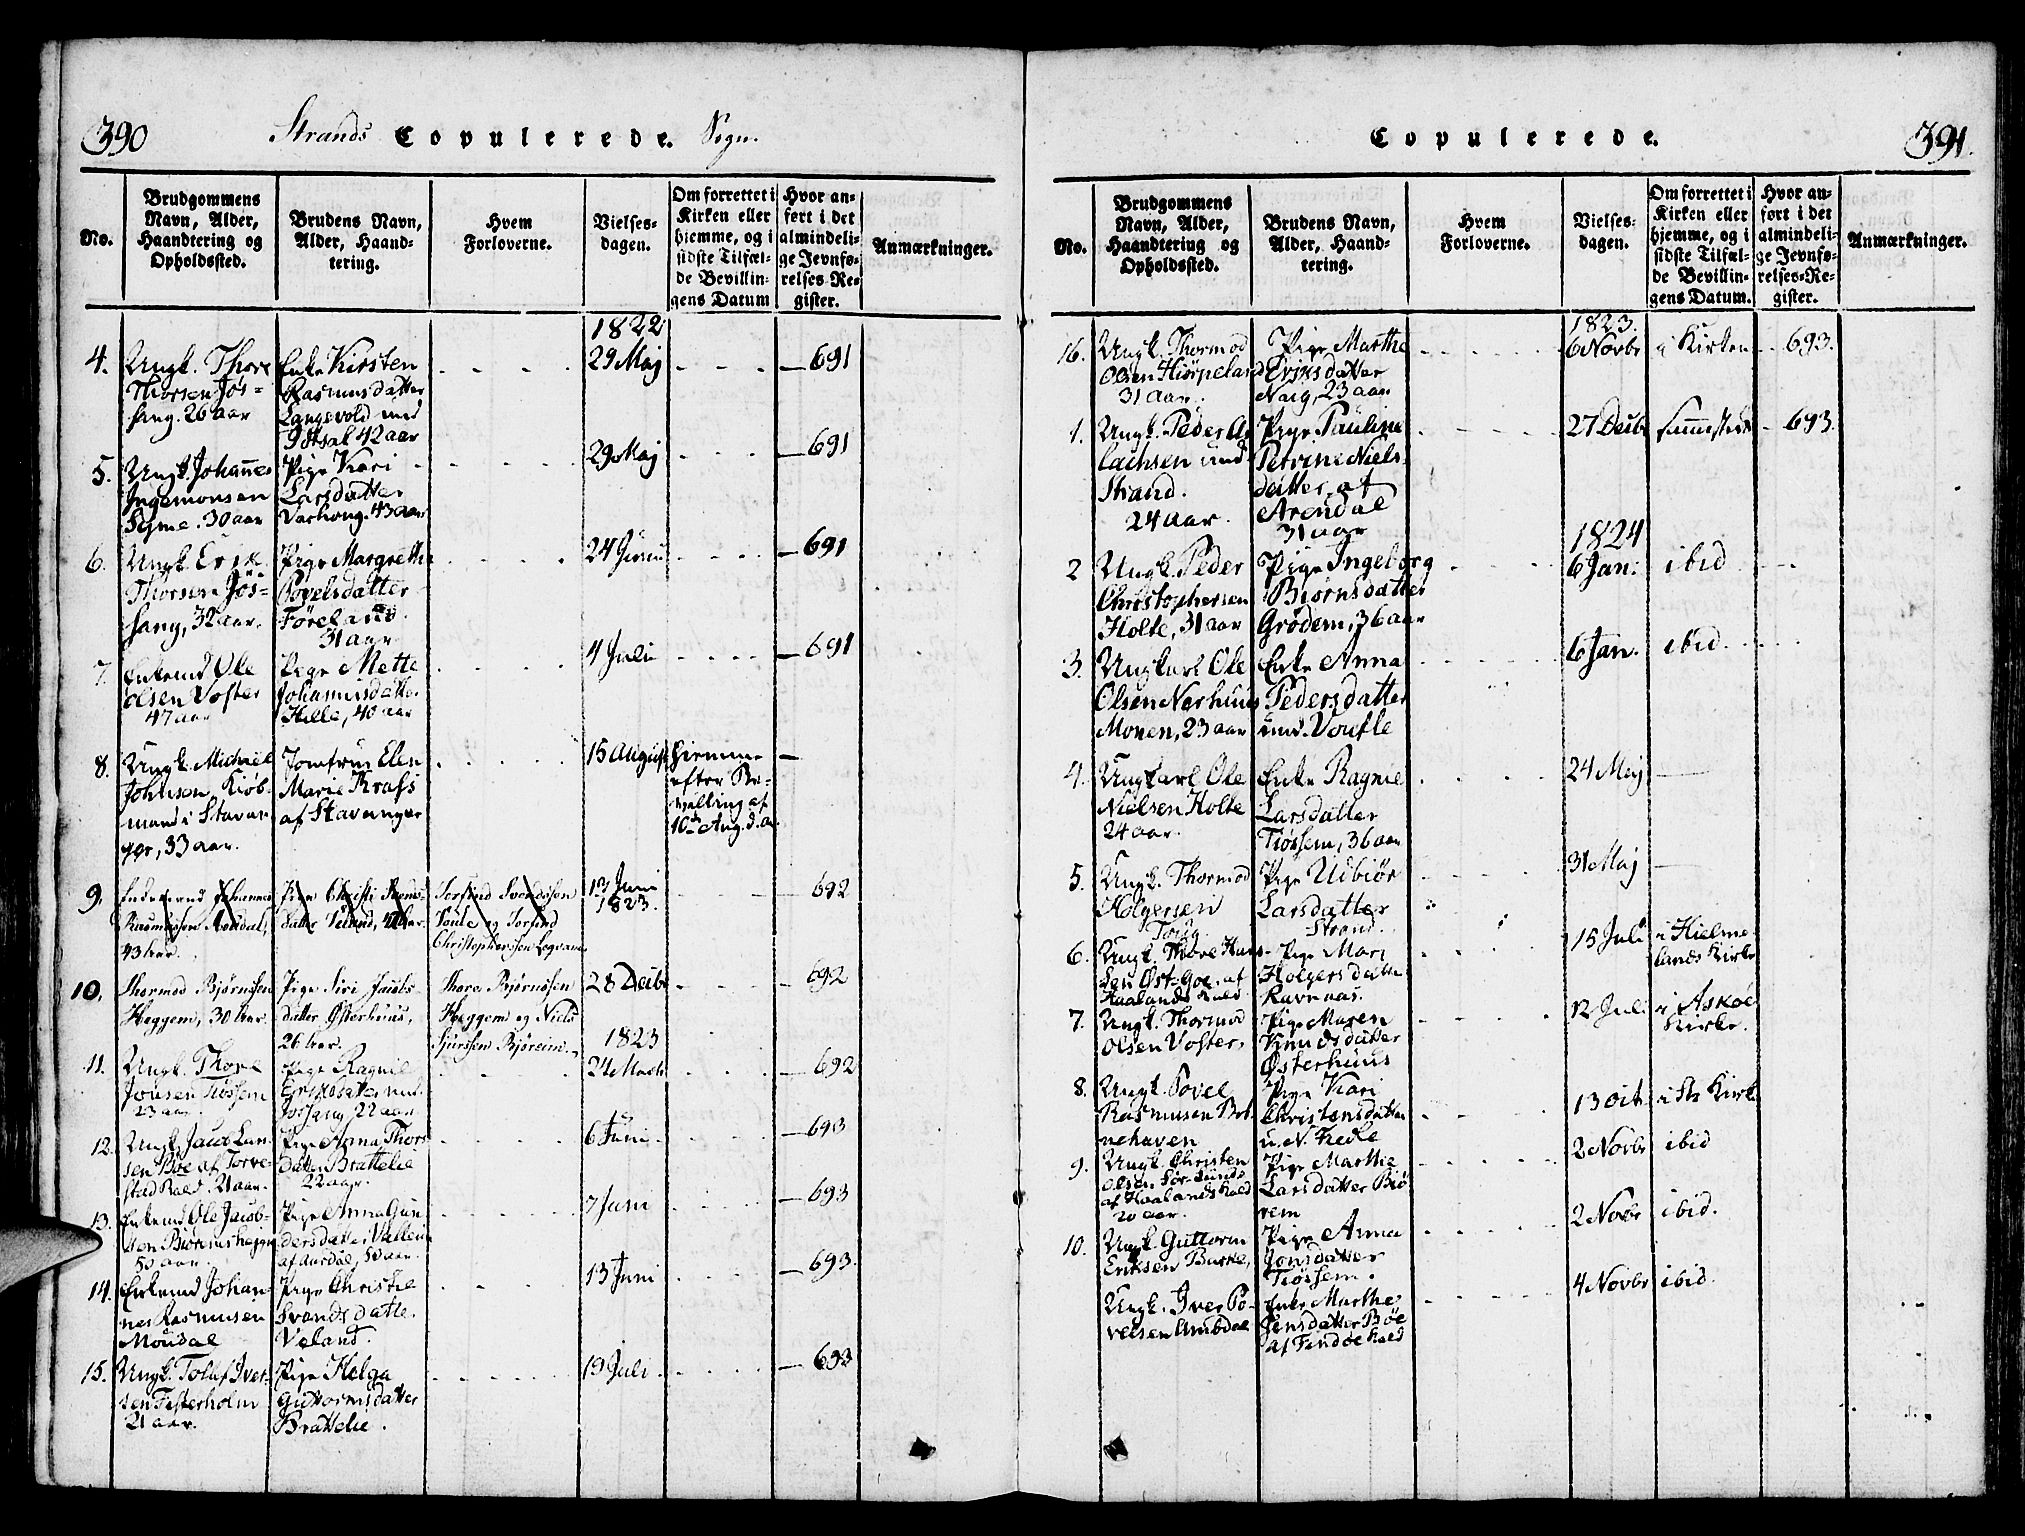 390
Strands Copulerede. Sogn.
No.
Brudgommens
Navn, Alder,
Haandtering og
Opholdssted.
Brudens Navn,
Alder, Haand-
tering.
Hvem
Forloverne.
Vielses-
dagen.
Om forrettet i
Kirken eller
hjemme, og i
sidste Tilfæl-
de Bevillin-
gens Datum
Hvor an-
ført i det
almindeli-
ge Jevnfø-
relses-Re-
gister.
Anmærkninger.
1822
4. Ungk. Thore
Thorsen Jøs-
sang. 26 aar
Enke Kirsten
Rasmusdatter
Langevold med
42 aar
29 Maj
691
5. Ungk. Johannes
Ingemonsen
30 aar
Pige Kari
Larsdatter
43 aar
29 Maj
691
6. Ungk. Erik
Thorsen Jøs-
sang, 32 aar.
Pige Margrethe
Povelsdatter
Føreland.
31 aar
24 Juni
691
7. Enkemd Ole
Olsen Voster
47 aar
Pige Mette
Johannisdatte.
Helle, 40 aar
4 Juli
691
8. Ungk. Michael
Johnsen Kiøb-
mand i Stavan
ger, 33 aar.
Jomfrue Elen
Marie Krafs
af Stavanger
15 August
hiemme
efter Be-
villing af
10de Aug. d. a.
9. Enkemand Johannes
Rasmussen Mousdal,
43 aar.
Pige Christi
datter Veland,
13 Juni
1823.
692
10. Thormod Bjørnssen
Heggem, 30 aar.
Pige Siri Jacobs
datter Østerhuus,
26 aar.
Thore Bjørnssen
Heggem og Niels
Sjurssen Bjøreim.
28 Decbr
692
1823
11. Ungk. Thore
Jonsen Tiøssem
23 aar.
Pige Ragnie
Jossang 22 aar
24 Martz
692
12. Ungk. Jacob Lau
sen Bøe af Torve-
stad Kald. 21 aar.
Pige Anna Thors
datter Brattelie
22 aar.
6 Juni
693
13. Enkemd Ole Jacob-
sen
50 aar
Pige Anna Gun
dersdatter
50 aar.
7 Juni
693
14. Enkemd Johan
nes Rasmusen
Mousdal
Pige Christie
Svendsdatte.
Veland.
13 Juni
693.
15. Ungk. Tolaf Iver-
sen Fisterholm
21 aar.
Pige Helga
Guttormsdatter
Brattelie.
19 Juli
693
Copulerede.
391.
No.
Brudgommens
Navn, Alder,
Haandtering og
Opholdssted.
Brudens Navn,
Alder, Haand-
tering.
Hvem
Forloverne.
Vielses-
dagen.
Om forrettet i
Kirken eller
hjemme, og i
sidste Tilfæl-
de Bevillin-
gens Datum.
Hvor an-
ført i det
almindeli-
ge Jevnfø-
relses-Re-
gister.
Anmærkninger.
1823.
16. Ungk. Thormod
Olsen Hiørpeland
31 aar.
Pige Marthe
Eriksdatter
Nag, 23 aar
6 Novbr
i Kirken
693.
1. Ungk. Peder
und
Strand.
24 aar.
Pige Pauline
Petrine Niels
datter af
Arendal
31 aar
27 Decbr
sammested
693.
1824
2 Ungk. Peder
Christophersen
Holte, 31 aar
Pige Ingeborg
Biørnsdatter
Grødem, 36 aar
6 Jan:
ibid
3. Ungkarl Ole
Olsen Norhuus
Monen, 23 aar
Enke Anna
Pedersdatter
und.
6 Jan.
ibid.
4. Ungkarl Ole
Nielsen Holte
24 aar.
Enke Ragnie
Larsdatter
Tiøssem, 36 aar
24 Maj
5. Ungk. Thormod
Holgersen
Pige Udbiør
Larsdatter
Strand.
31 Maj
6. Ungk. Thore Hans
sen Øst-Goe. af
Haalands Kald
Pige Mari
Holgersdatte
Ravnaas.
15 Juli
i Hielme
lands Kirke
7. Ungk. Thormod
Olsen Voster,
Pige Maren
Knudsdatter
Østerhuus
12 Juli
i Askøe
Kirke.
8. Ungk. Povel
Rasmusen Bot
nehaven
Pige Kari
Christensdatter
13 Oct.
i St. Kirke
9. Ungk. Christen
Olsen Sør-Sunde
af Haalands Kald
20 aar.
Pige Marthe
Larsdatter Biø
rem
2 Novbr
ibid
10. Ungk. Guttorm
Eriksen
Pige Anna
Jonsdatter
Tiøssem.
2 Novbr
ibid.
Ungk. Iver Po-
velsen Ambdal
Enke Marthe
Jensdatter Bøe
af Findøe Kald
4 Novbr
ibid.